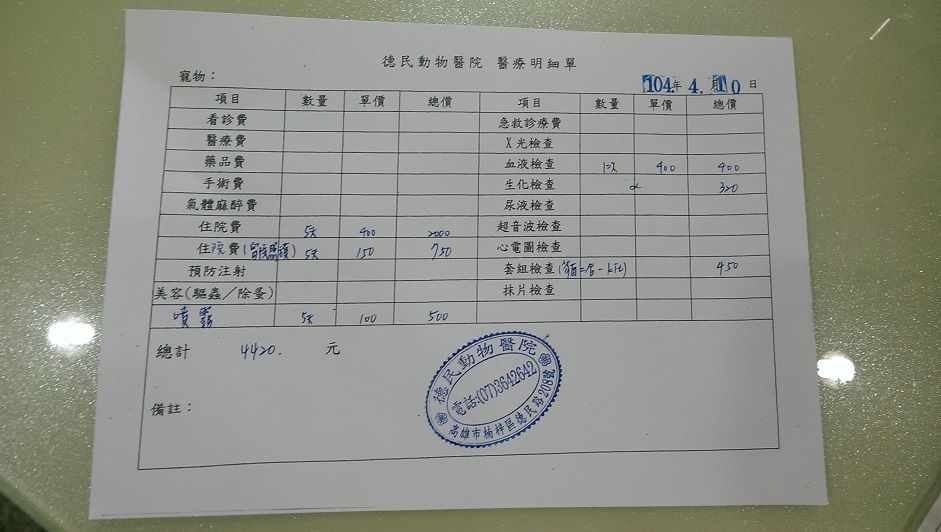 德民動物醫院 醫療明細單
寵物：
104年 4.月10日
項目 數量 單價 總價 項目 數量 單價 總價
看診費 急救診療費
醫療費 X光檢查
藥品費 血液檢查 1次 400 400
手術費 生化檢查 320
氣體麻醉費 尿液檢查
住院費 5天 400 2000 超音波檢查
住院費( ) 5天 150 750 心電圖檢查
預防注射 套組檢查(貓三合一kit) 450
美容(驅蟲／除蚤) 抹片檢查
噴霧 5天 100 500
總計 4420. 元
德民動物醫院
電話:(07)3642642
高雄市楠梓區德民路208號
備註：